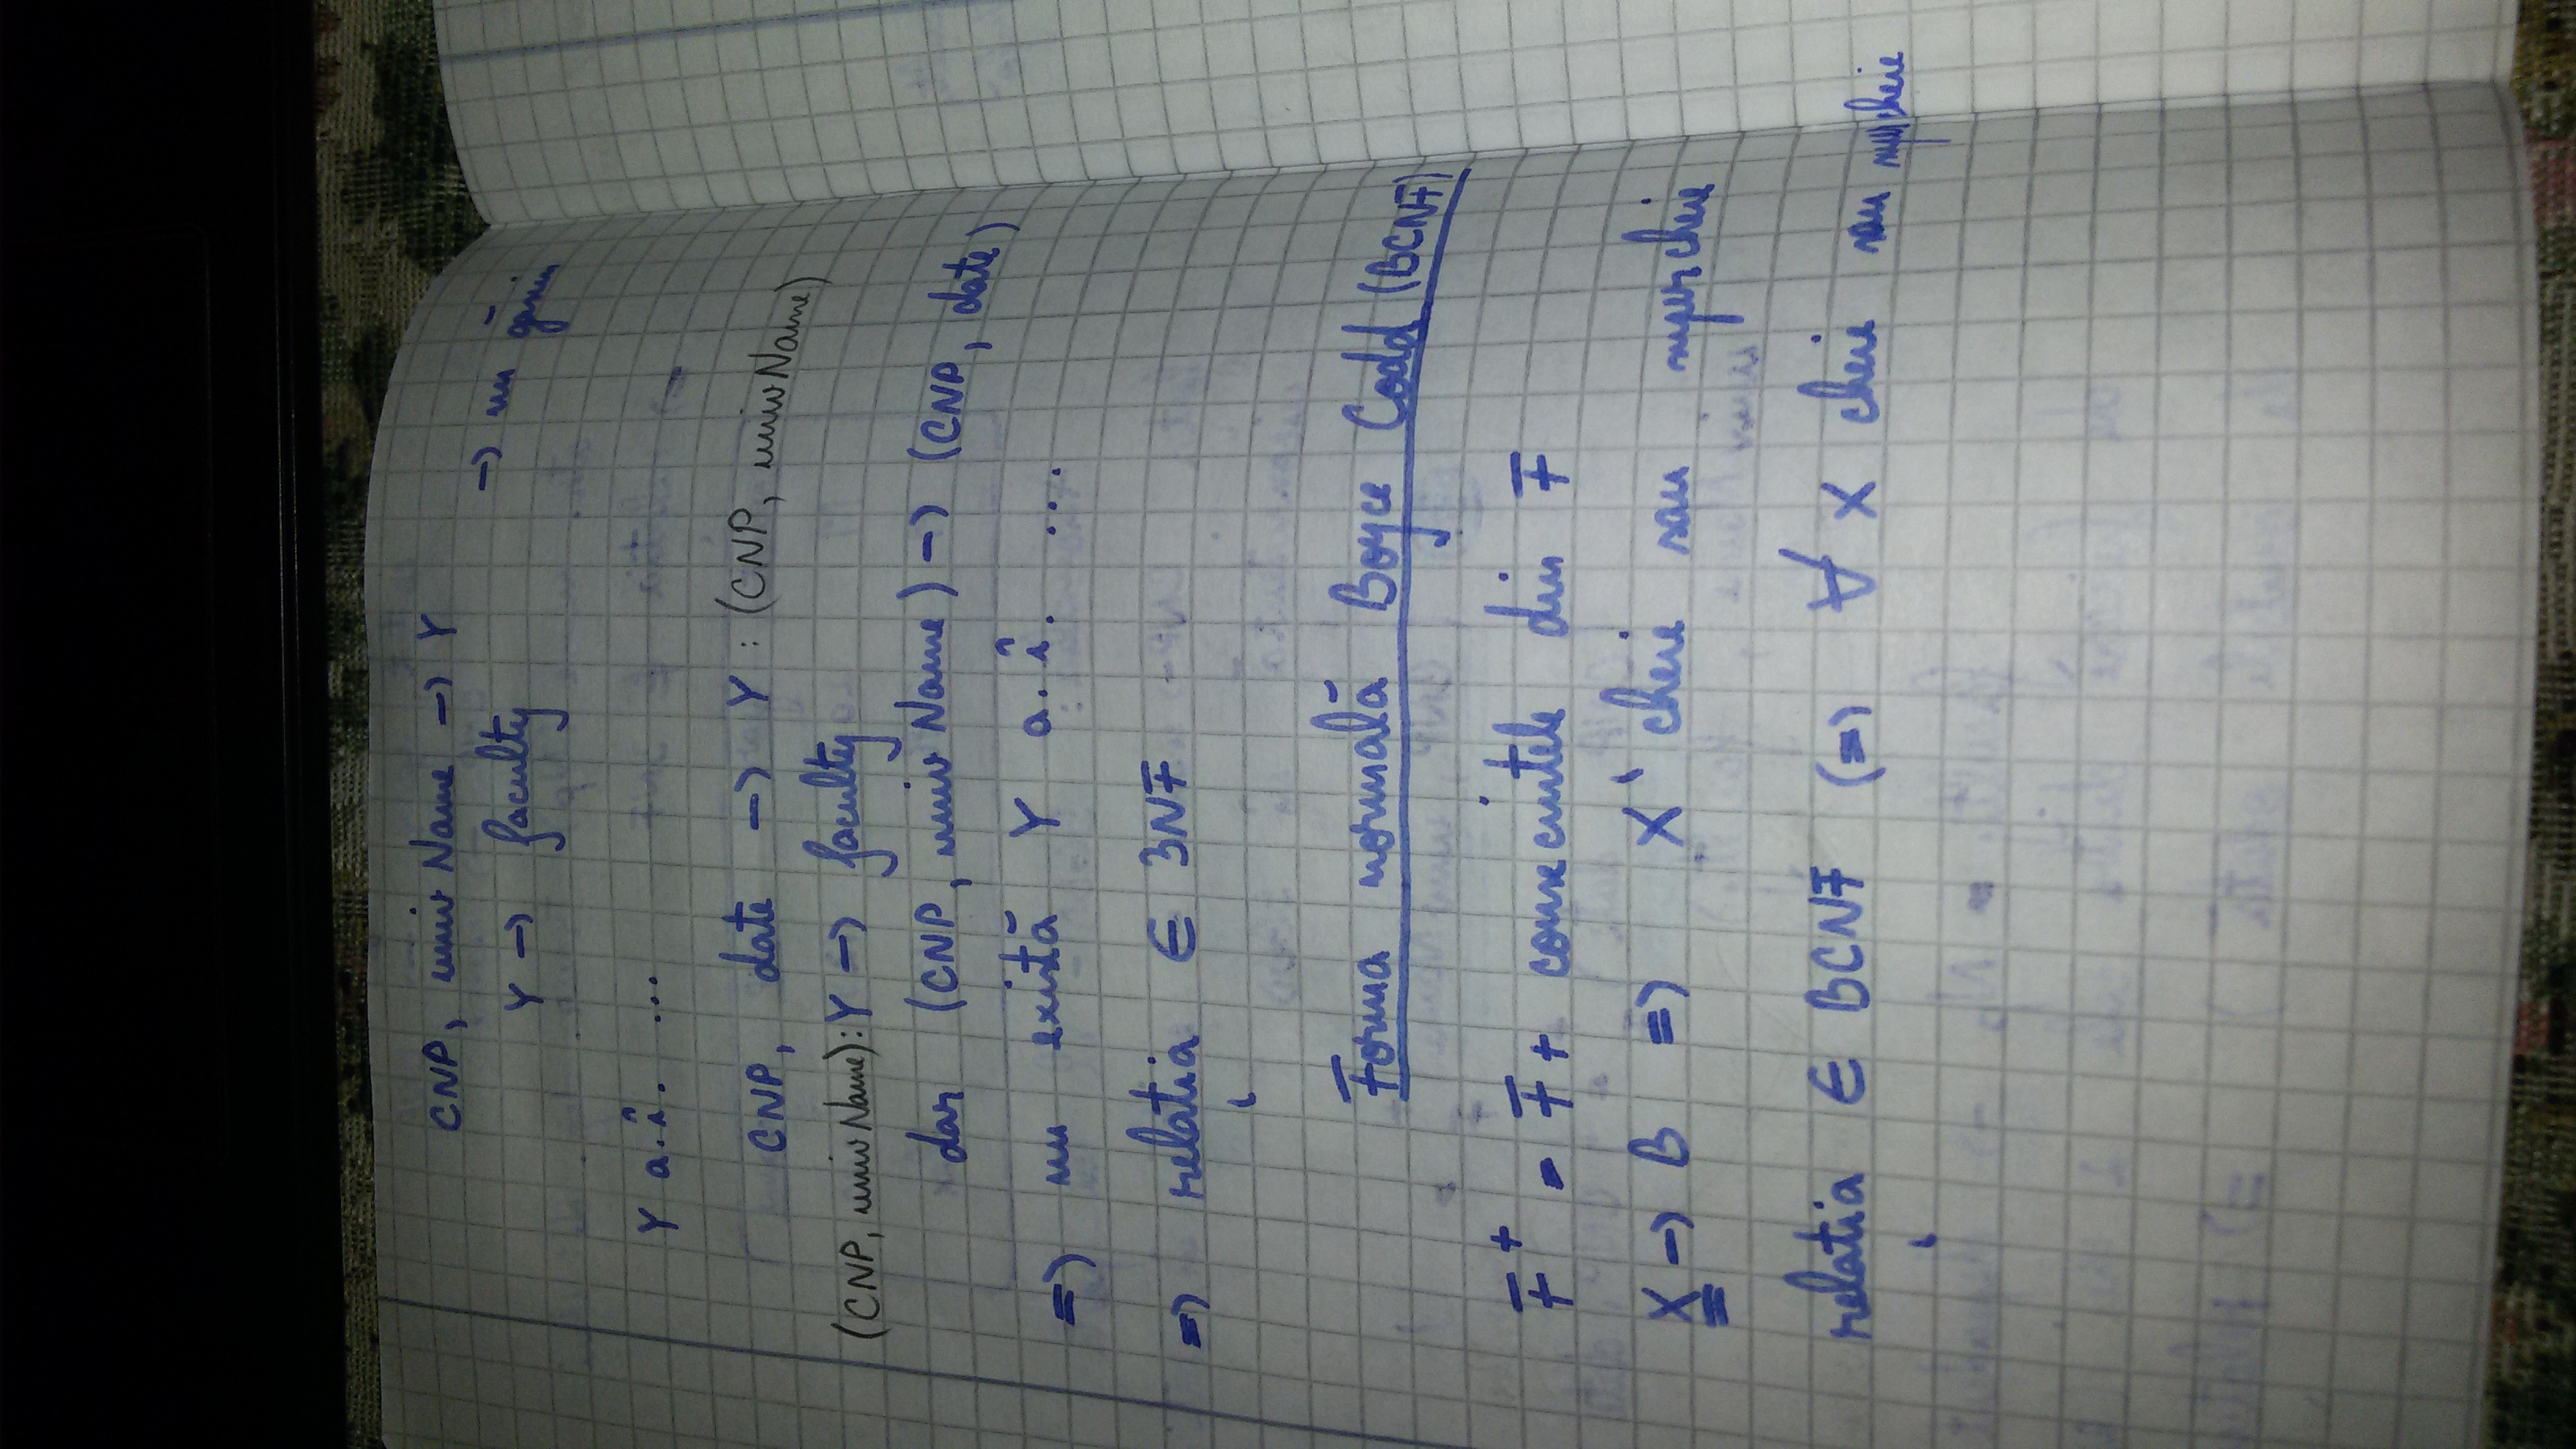 CNP, univName -> Y
Y -> faculty -> nu găsim
Y a.î. ...
CNP, date -> Y : (CNP, univName)
(CNP, univName): Y -> faculty
dar (CNP, univName) -> (CNP, date)
=> nu există Y a.î. ...
=> relația ∈ 3NF
Forma normală Boyce Codd (BCNF)
F⁺ = F + consecințele din F
X -> B => X cheie sau supercheie
relația ∈ BCNF (=> ∀ X cheie sau supercheie